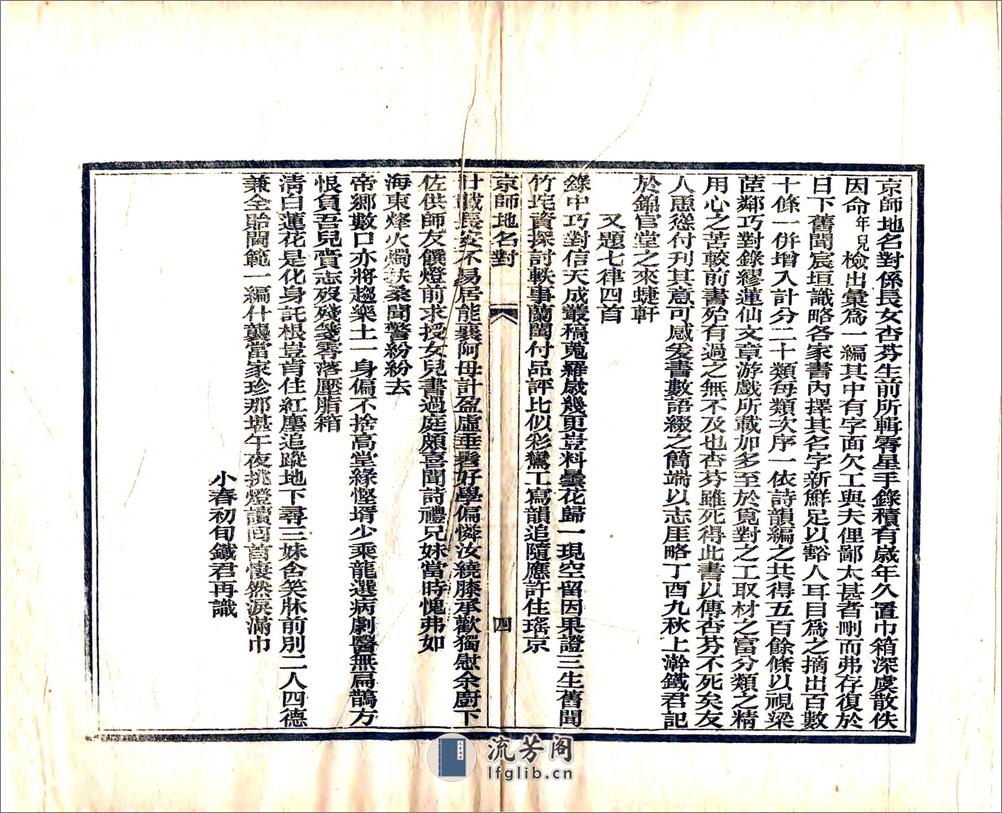 京師地名對係長女杏芬生前所輯零星手錄積有歲年久置巾箱深虞散佚
因命年兒檢出彙為一編其中有字面欠工與夫俚鄙太甚者刪而弗存復於
日下舊聞宸垣識略各家書內擇其名字新鮮足以豁人耳目為之摘出百數
十條一併增入計分二十類每類次序一依詩韻編之共得五百餘條以視梁
茞鄰巧對錄繆蓮仙文章游戲所載加多至於覓對之工取材之富分類之精
用心之苦較前書殆有過之無不及也杏芬雖死得此書以傳杏芬不死矣友
人慫慂付刊其意可感爰書數語綴之簡端以志厓略丁酉九秋上澣鐵君記
於錦官堂之來蜨軒
又題七律四首
錄中巧對信天成叢稿蒐羅歲幾更豈料曇花歸一現空留因果證三生舊聞
竹垞資探討軼事蘭閨付品評比似彩鸞工寫韻追隨應許住瑤京
京師地名對
四
廿載長安不易居能襄阿母計盈虛垂髫好學偏憐汝繞膝承歡獨慰余廚下
佐供師友饌燈前求授女兒書過庭頗喜聞詩禮兄妹當時愧弗如
海東烽火燭扶桑聞警紛紛去
帝鄉數口亦將趨樂土一身偏不捨高堂緣慳壻少乘龍選病劇醫無扁鵲方
恨負吾兒賫志歿殘箋零落壓脂箱
清白蓮花是化身託根豈肯住紅塵追蹤地下尋三妹含笑牀前別二人四德
兼全貽閫範一編什襲當家珍那堪午夜挑燈讀回首悽然淚滿巾
小春初旬鐵君再識
流芳阁
lfglib.cn